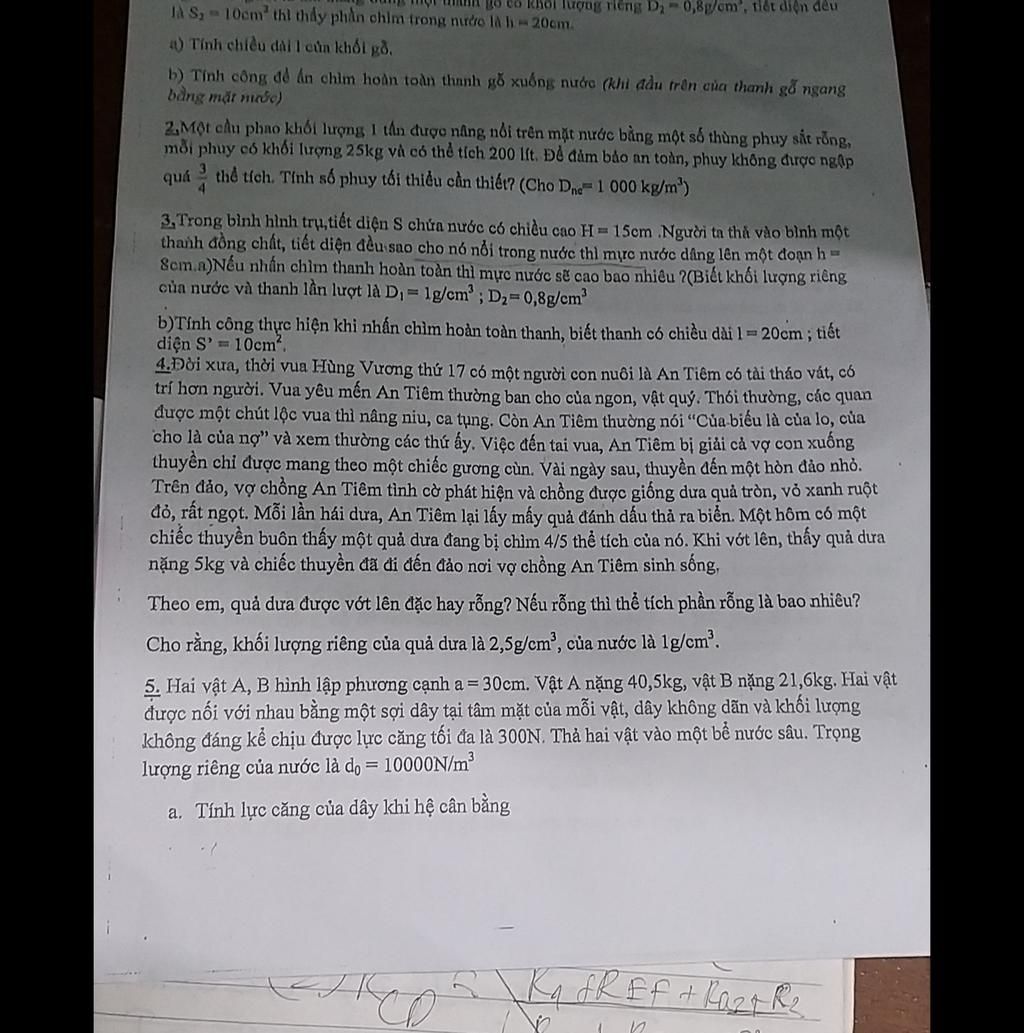 gỗ có khối lượng riêng D₂ = 0,8g/cm³, tiết diện đều
là S₂ = 10cm² thì thấy phần chìm trong nước là h = 20cm.
a) Tính chiều dài l của khối gỗ.
b) Tính công để ấn chìm hoàn toàn thanh gỗ xuống nước (khi đầu trên của thanh gỗ ngang
bằng mặt nước)
2.Một cầu phao khối lượng 1 tấn được nâng nổi trên mặt nước bằng một số thùng phuy sắt rỗng,
mỗi phuy có khối lượng 25kg và có thể tích 200 lít. Để đảm bảo an toàn, phuy không được ngập
quá 3/4 thể tích. Tính số phuy tối thiểu cần thiết? (Cho Dnc= 1 000 kg/m³)
3.Trong bình hình trụ,tiết diện S chứa nước có chiều cao H = 15cm .Người ta thả vào bình một
thanh đồng chất, tiết diện đều sao cho nó nổi trong nước thì mực nước dâng lên một đoạn h =
8cm.a)Nếu nhấn chìm thanh hoàn toàn thì mực nước sẽ cao bao nhiêu ?(Biết khối lượng riêng
của nước và thanh lần lượt là D₁ = 1g/cm³ ; D₂ = 0,8g/cm³
b)Tính công thực hiện khi nhấn chìm hoàn toàn thanh, biết thanh có chiều dài l = 20cm ; tiết
diện S' = 10cm².
4.Đời xưa, thời vua Hùng Vương thứ 17 có một người con nuôi là An Tiêm có tài tháo vát, có
trí hơn người. Vua yêu mến An Tiêm thường ban cho của ngon, vật quý. Thói thường, các quan
được một chút lộc vua thì nâng niu, ca tụng. Còn An Tiêm thường nói “Của biếu là của lo, của
cho là của nợ” và xem thường các thứ ấy. Việc đến tai vua, An Tiêm bị giải cả vợ con xuống
thuyền chỉ được mang theo một chiếc gương cùn. Vài ngày sau, thuyền đến một hòn đảo nhỏ.
Trên đảo, vợ chồng An Tiêm tình cờ phát hiện và chồng được giống dưa quả tròn, vỏ xanh ruột
đỏ, rất ngọt. Mỗi lần hái dưa, An Tiêm lại lấy mấy quả đánh dấu thả ra biển. Một hôm có một
chiếc thuyền buôn thấy một quả dưa đang bị chìm 4/5 thể tích của nó. Khi vớt lên, thấy quả dưa
nặng 5kg và chiếc thuyền đã đi đến đảo nơi vợ chồng An Tiêm sinh sống.
Theo em, quả dưa được vớt lên đặc hay rỗng? Nếu rỗng thì thể tích phần rỗng là bao nhiêu?
Cho rằng, khối lượng riêng của quả dưa là 2,5g/cm³, của nước là 1g/cm³.
5. Hai vật A, B hình lập phương cạnh a = 30cm. Vật A nặng 40,5kg, vật B nặng 21,6kg. Hai vật
được nối với nhau bằng một sợi dây tại tâm mặt của mỗi vật, dây không dãn và khối lượng
không đáng kể chịu được lực căng tối đa là 300N. Thả hai vật vào một bể nước sâu. Trọng
lượng riêng của nước là d₀ = 10000N/m³
a. Tính lực căng của dây khi hệ cân bằng